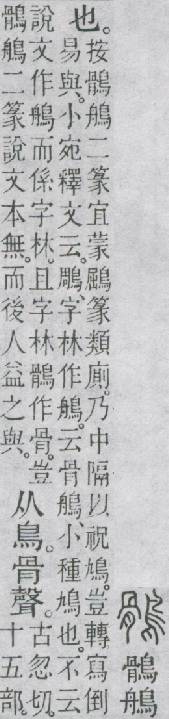 鶻 鶻鵃
也。
按鶻鵃二篆宜蒙鶌篆類廁。乃中隔以祝鳩。豈轉寫倒
易與。小宛釋文云。鵰、字林作鵃。云骨鵃、小種鳩也。不云
說文作鵃而係字林。且字林鶻作骨。豈
鶻鵃二篆說文本無。而後人益之與。
从鳥。骨聲。
古忽切。
十五部。